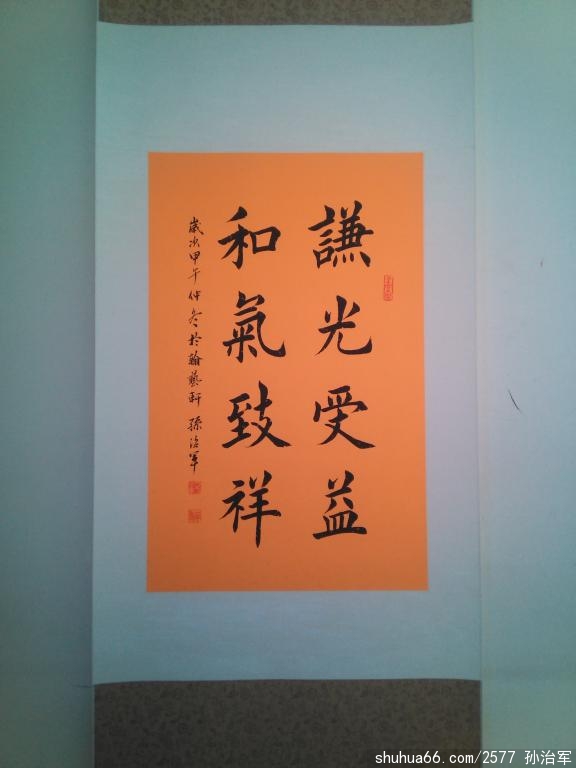 謙光受益
和氣致祥
歲次甲午仲冬於翰藝軒 孫治軍
shuhua66.com/2577 孙治军